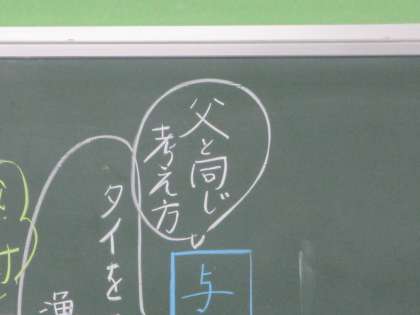 父と同じ
考え方
与
タイを
漁